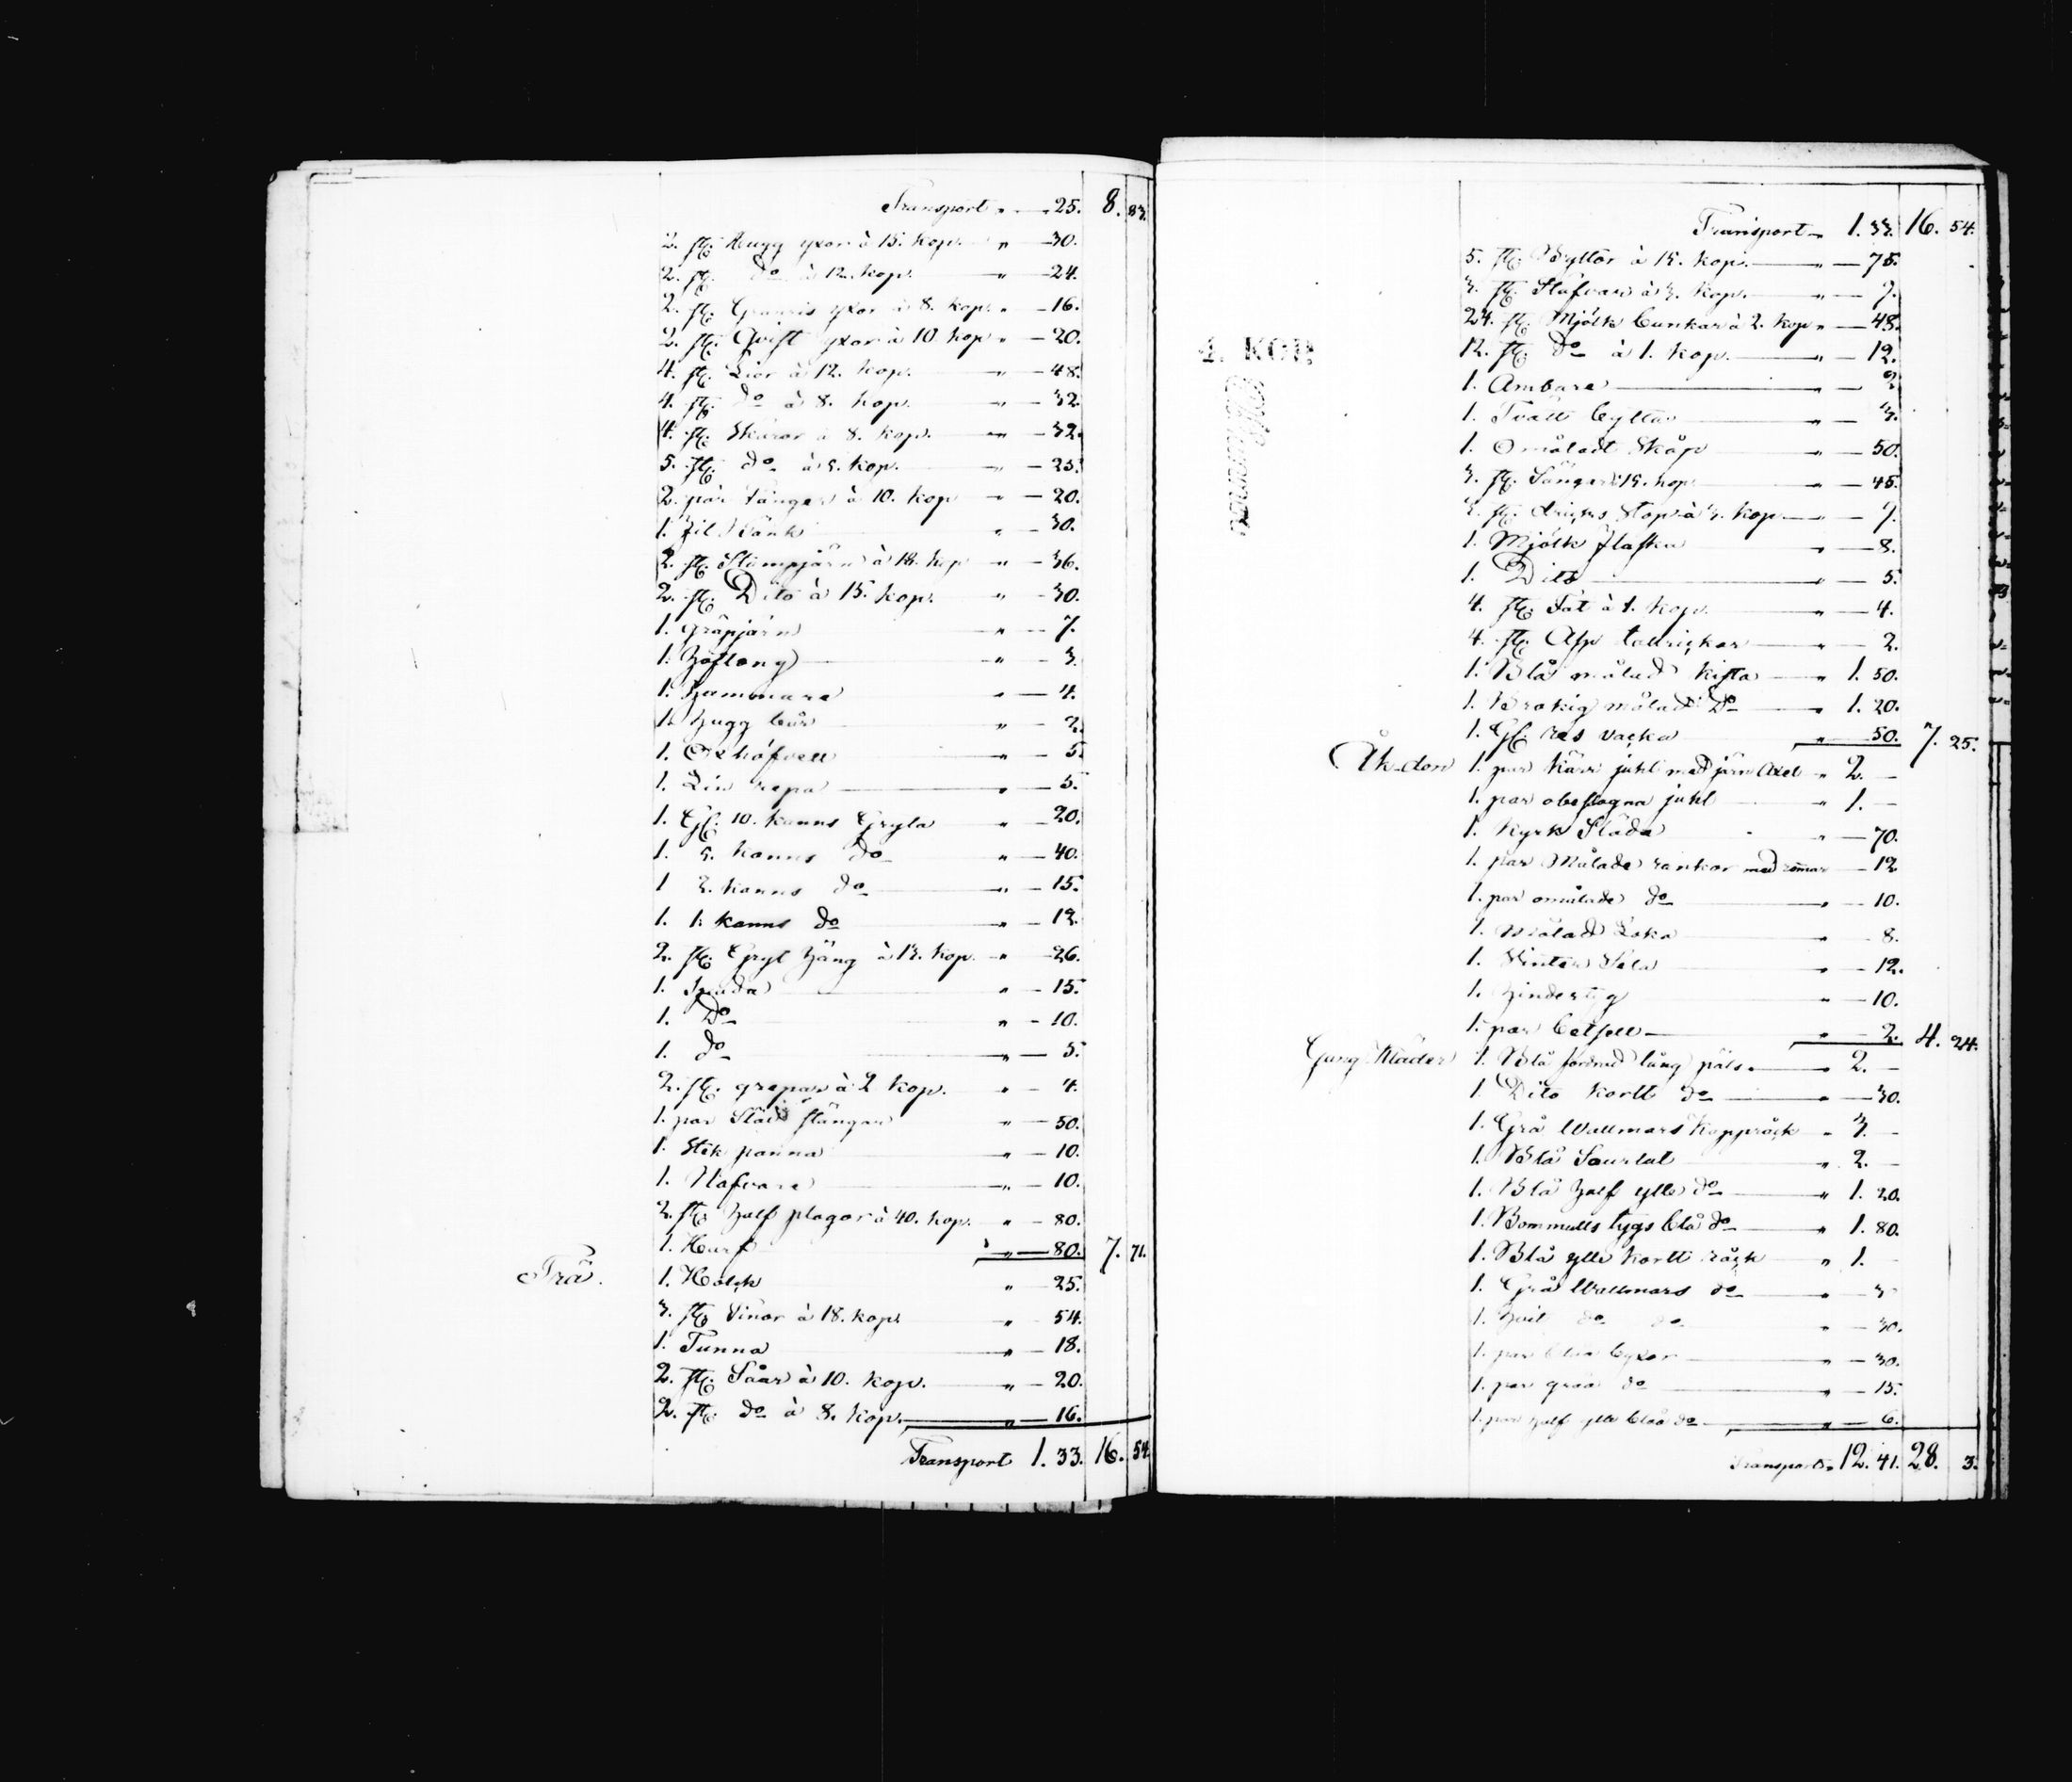 Transport " — 25. 8. 83.
2. st: Hugg yxor à 15. kop. " — 30.
2. st: do à 12. kop. " — 24.
2. st: yxor à 8. kop. " — 16.
2. st: Qvist yxor à 10 kop " — 20.
4. st: Lior à 12. kop. " — 48.
4. st: do à 8. kop. " — 32.
4. st: Skäror à 8. kop. " — 32.
5. st: do à 5. kop. " — 25.
2. par tänger à 10. kop " — 20.
1. Fil Bänk " — 30.
2. st: Stämpjärn à 18. kop " — 36.
2. st: Dito à 15. kop. " — 30.
1. Gräpjärn " — 7.
1. Hoftong " — 3.
1. Hammare " — 4.
1. Hugg " — 2.
1. " — 5.
1. Lin repa " — 5.
1. Gl: 10. kanns Gryta " — 20.
1. 5. kanns do " — 40.
1 2. kanns do " — 15.
1. 1. kanns do " — 12.
2. st: Gryt häng à 13. kop. " — 26.
1. Spada " — 15.
1. Do " — 10.
1. do " — 5.
2. st: grepar à 2 kop. " — 4.
1. par Släd stänger " — 50.
1. Stek panna " — 10.
1. Nafvare " — 10.
2. st: Half plogar à 40. kop. " — 80.
1. Harf " — 80. 7. 71.
Trä. 1. Holck " — 25.
3. st: Tinor à 18. kop. " — 54.
1. Tunna " — 18.
2. st: Såar à 10. kop. " — 20.
2. st: do à 8. kop. " — 16.
Transport 1. 33. 16. 54.
Transport " 1. 33. 16. 54.
5. st: Byttor à 15. kop. " — 75.
3. st: Stäfvar à 3. kop. " — 9.
24. st: Mjölk bunkar à 2. kop " — 48.
12. st: do à 1. kop. " — 12.
4. KOP.
1. Ambare " — 2
1. Tvätt bytta " — 3.
1. Omåladt Skåp " — 50.
3. st: Sängar à 15. kop " — 45.
3. st: dricks stop à 3. kop " — 9.
1. Mjölk flaska " — 8.
1. Dito " — 5.
4. st: Fat à 1. kop. " — 4.
4. st: Asp tallrickar " — 2.
1. Blå målad kista " 1. 50.
1. Brokig målad Do " 1. 20.
1. Gl: res vacka " — 50. 7. 25.
Åk-don 1. par kärr juhl med järn Axel " 2. —
1. par obeslagna juhl " 1. —
1. Kyrk Släda " — 70.
1. par Målade rankor med remar — 12
1. par omålade do " — 10.
1. Målad Loka " — 8.
1. Vinter Sela " — 12.
1. Hindertyg " — 10.
1. par betsell " — 2. 4. 24.
Gång Kläder 1. Blå fodrad lång päls " 2. —
1. Dito kortt do " — 30.
1. Grå Wallmars Kappråck " 3. —
1. Blå Surtut " 2. —
1. Blå Half ylle do " 1. 20.
1. Bommulls tygs blå do " 1. 80.
1. Blå ylle kortt råck " 1. —
1. Grå Wallmars do " —
1. Hvit do do " — 30.
1. par blåa byxor " — 30.
1. par gråa do " — 15.
1. par half ylle blåa do " — 6.
Transport " 12. 41. 28. 3.